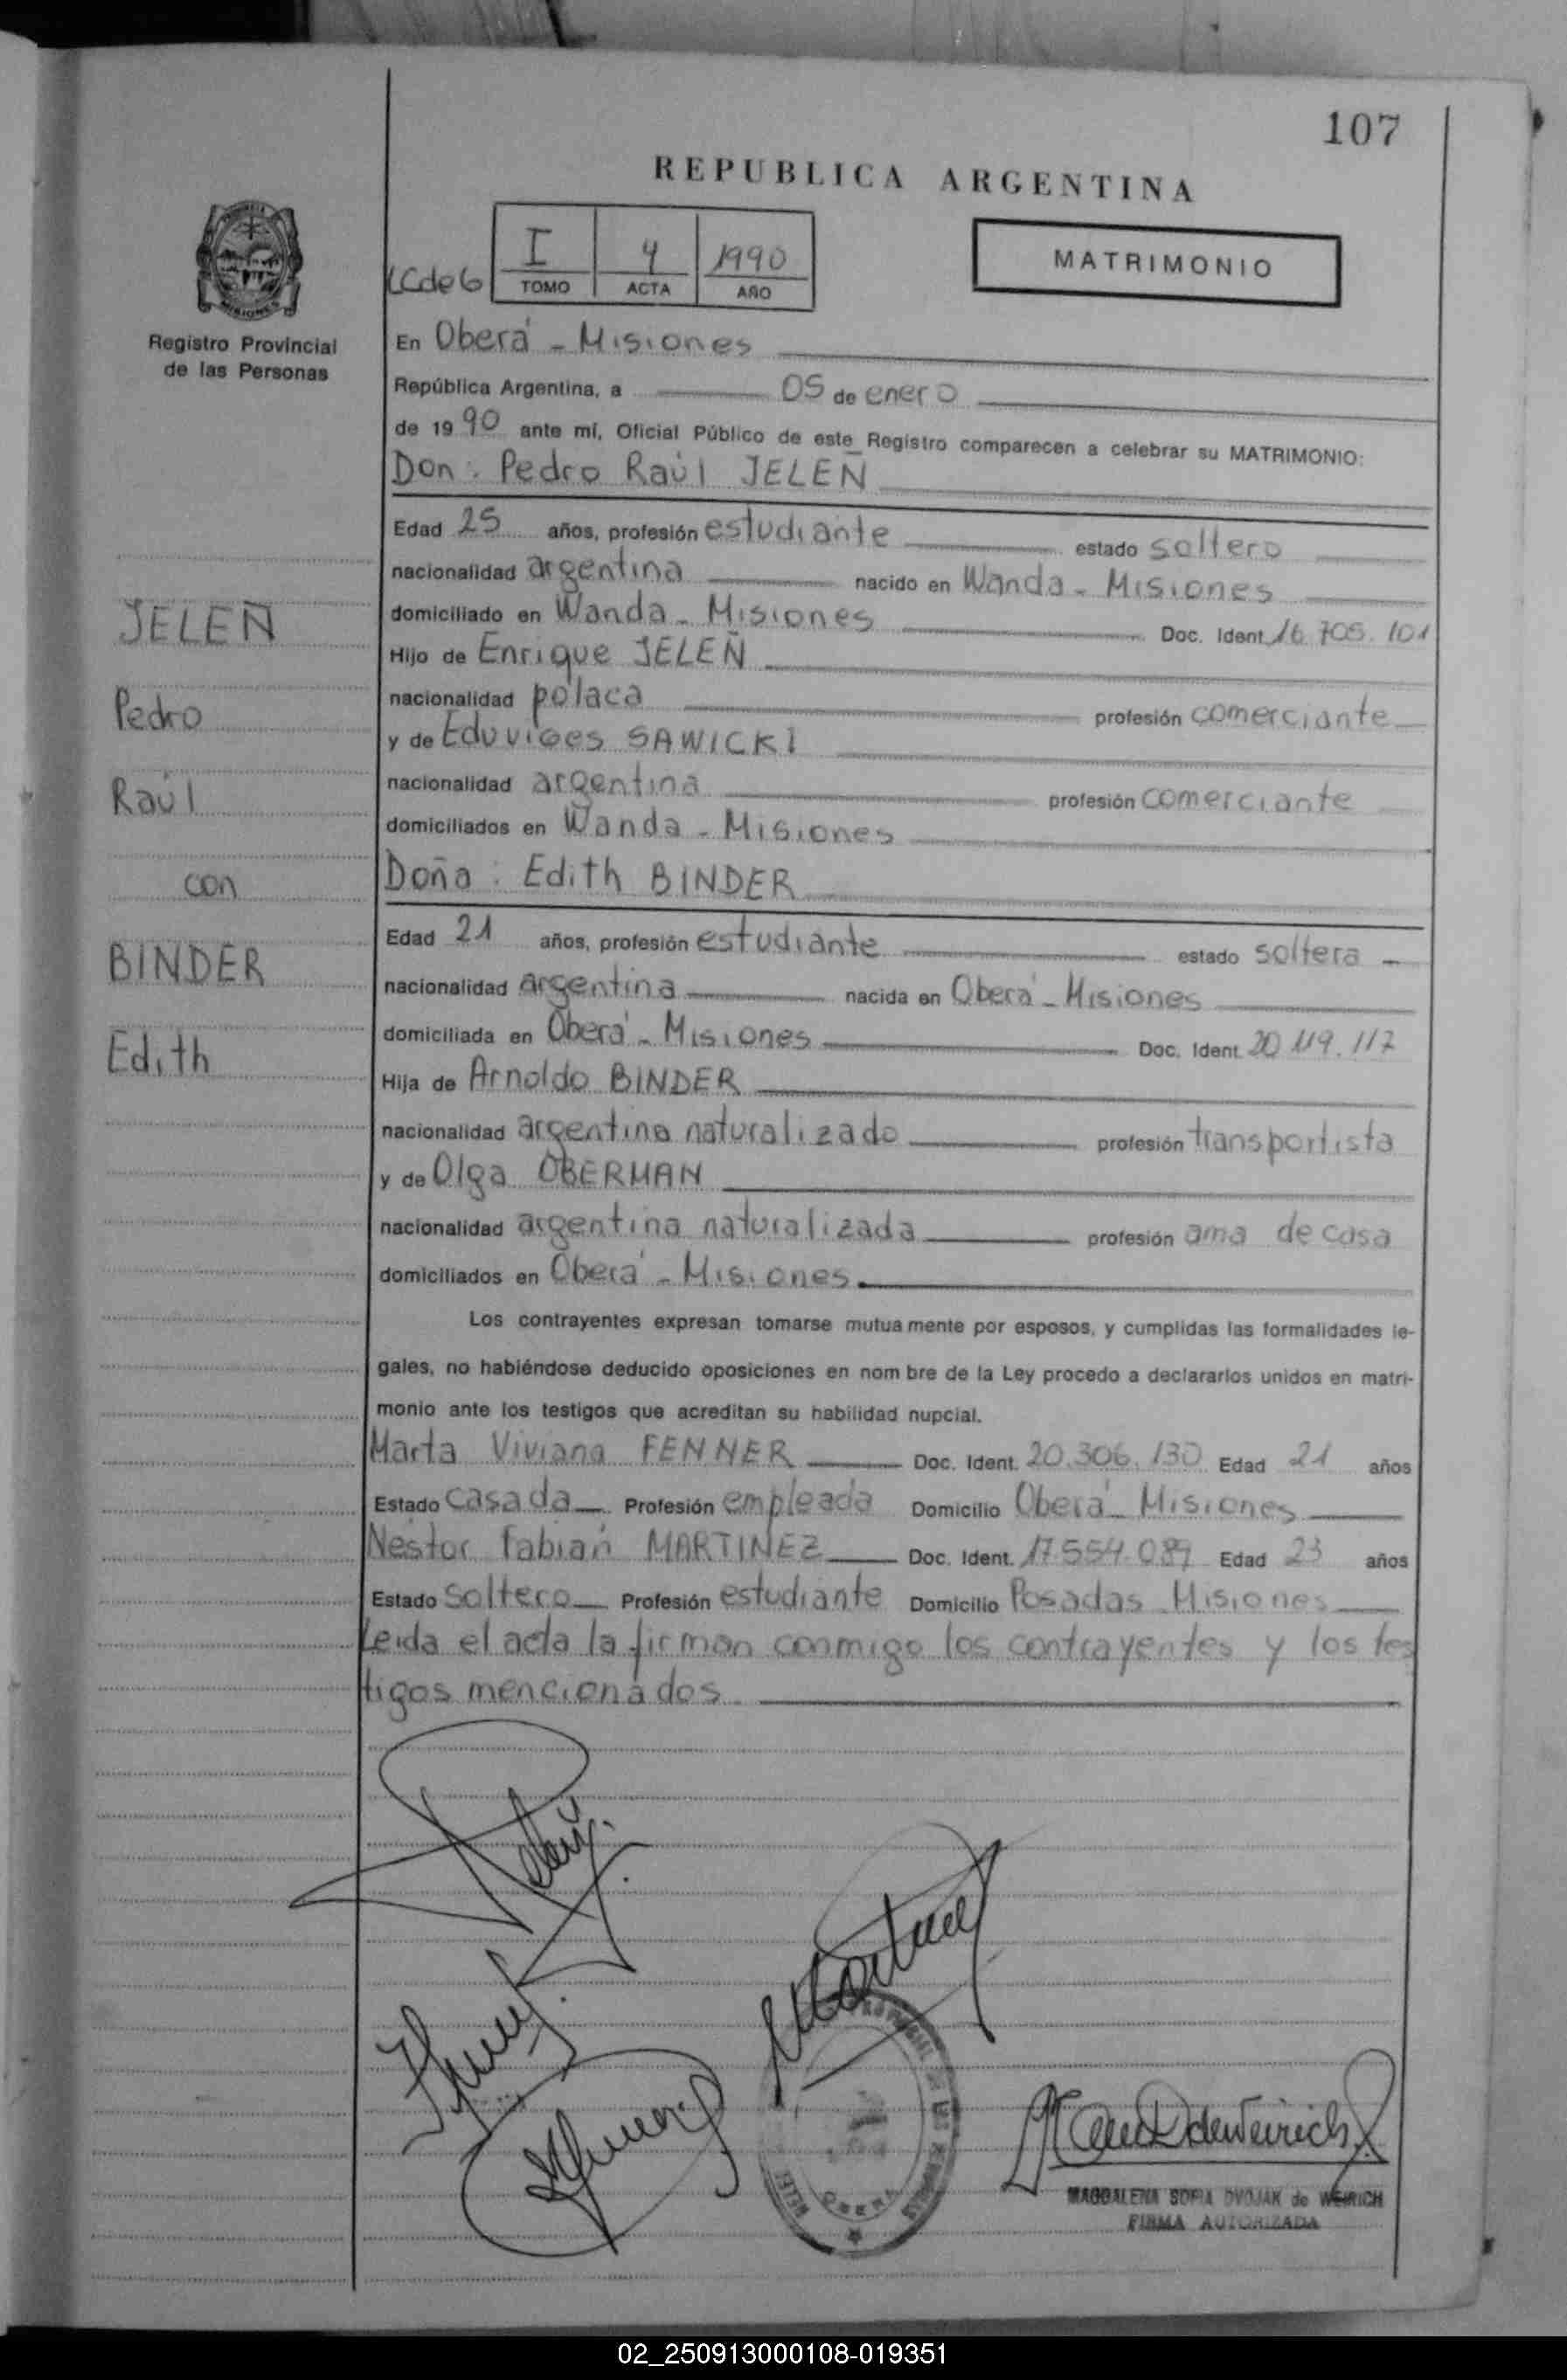 107
REPUBLICA ARGENTINA
I 4 1990
TOMO ACTA AÑO
MATRIMONIO
Registro Provincial
de las Personas
En Oberá - Misiones
República Argentina, a 05 de enero
de 1990 ante mí, Oficial Público de este Registro comparecen a celebrar su MATRIMONIO:
Don: Pedro Raúl JELEÑ
Edad 25 años, profesión estudiante estado soltero
nacionalidad argentina nacido en Wanda - Misiones
domiciliado en Wanda - Misiones Doc. Ident. 16.705.101
Hijo de Enrique JELEÑ
nacionalidad polaca profesión comerciante
y de Eduviges SAWICKI
nacionalidad argentina profesión comerciante
domiciliados en Wanda - Misiones
Doña: Edith BINDER
Edad 21 años, profesión estudiante estado soltera
nacionalidad argentina nacida en Oberá - Misiones
domiciliada en Oberá - Misiones Doc. Ident. 20.119.117
Hija de Arnoldo BINDER
nacionalidad argentina naturalizado profesión transportista
y de Olga OBERMAN
nacionalidad argentina naturalizada profesión ama de casa
domiciliados en Oberá - Misiones
JELEÑ
Pedro
Raúl
con
BINDER
Edith
Los contrayentes expresan tomarse mutuamente por esposos, y cumplidas las formalidades le-
gales, no habiéndose deducido oposiciones en nombre de la Ley procedo a declararlos unidos en matri-
monio ante los testigos que acreditan su habilidad nupcial.
Marta Viviana FENNER Doc. Ident. 20.306.130 Edad 21 años
Estado casada Profesión empleada Domicilio Oberá - Misiones
Nestor Fabián MARTINEZ Doc. Ident. 17.554.089 Edad 23 años
Estado soltero Profesión estudiante Domicilio Posadas Misiones
Leida el acta la firman conmigo los contrayentes y los tes
tigos mencionados
MAGDALENA SOFIA DVOJAK de WEIRICH
FIRMA AUTORIZADA
02_250913000108-019351